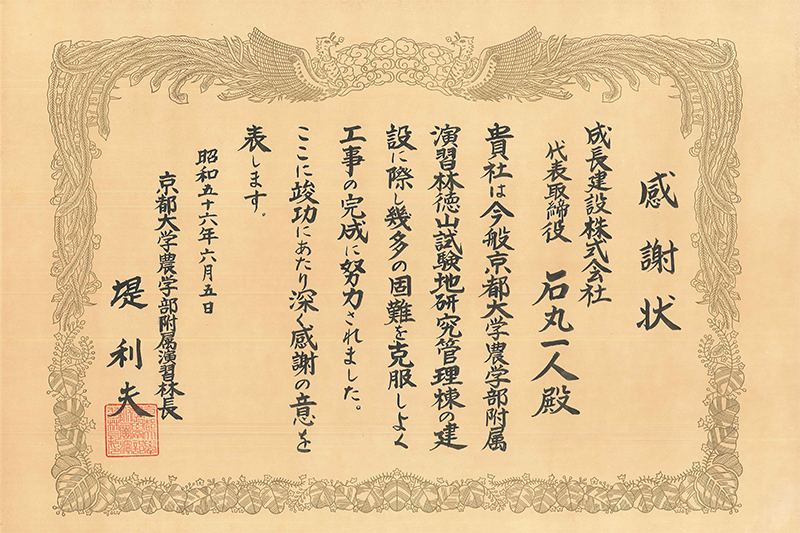 感謝状
成長建設株式会社
代表取締役 石丸一人殿
貴社は今般京都大学農学部附属
演習林徳山試験地研究管理棟の建
設に際し幾多の困難を克服しよく
工事の完成に努力されました。
ここに竣功にあたり深く感謝の意を
表します。
昭和五十六年六月五日
京都大学農学部附属演習林長
堤利夫